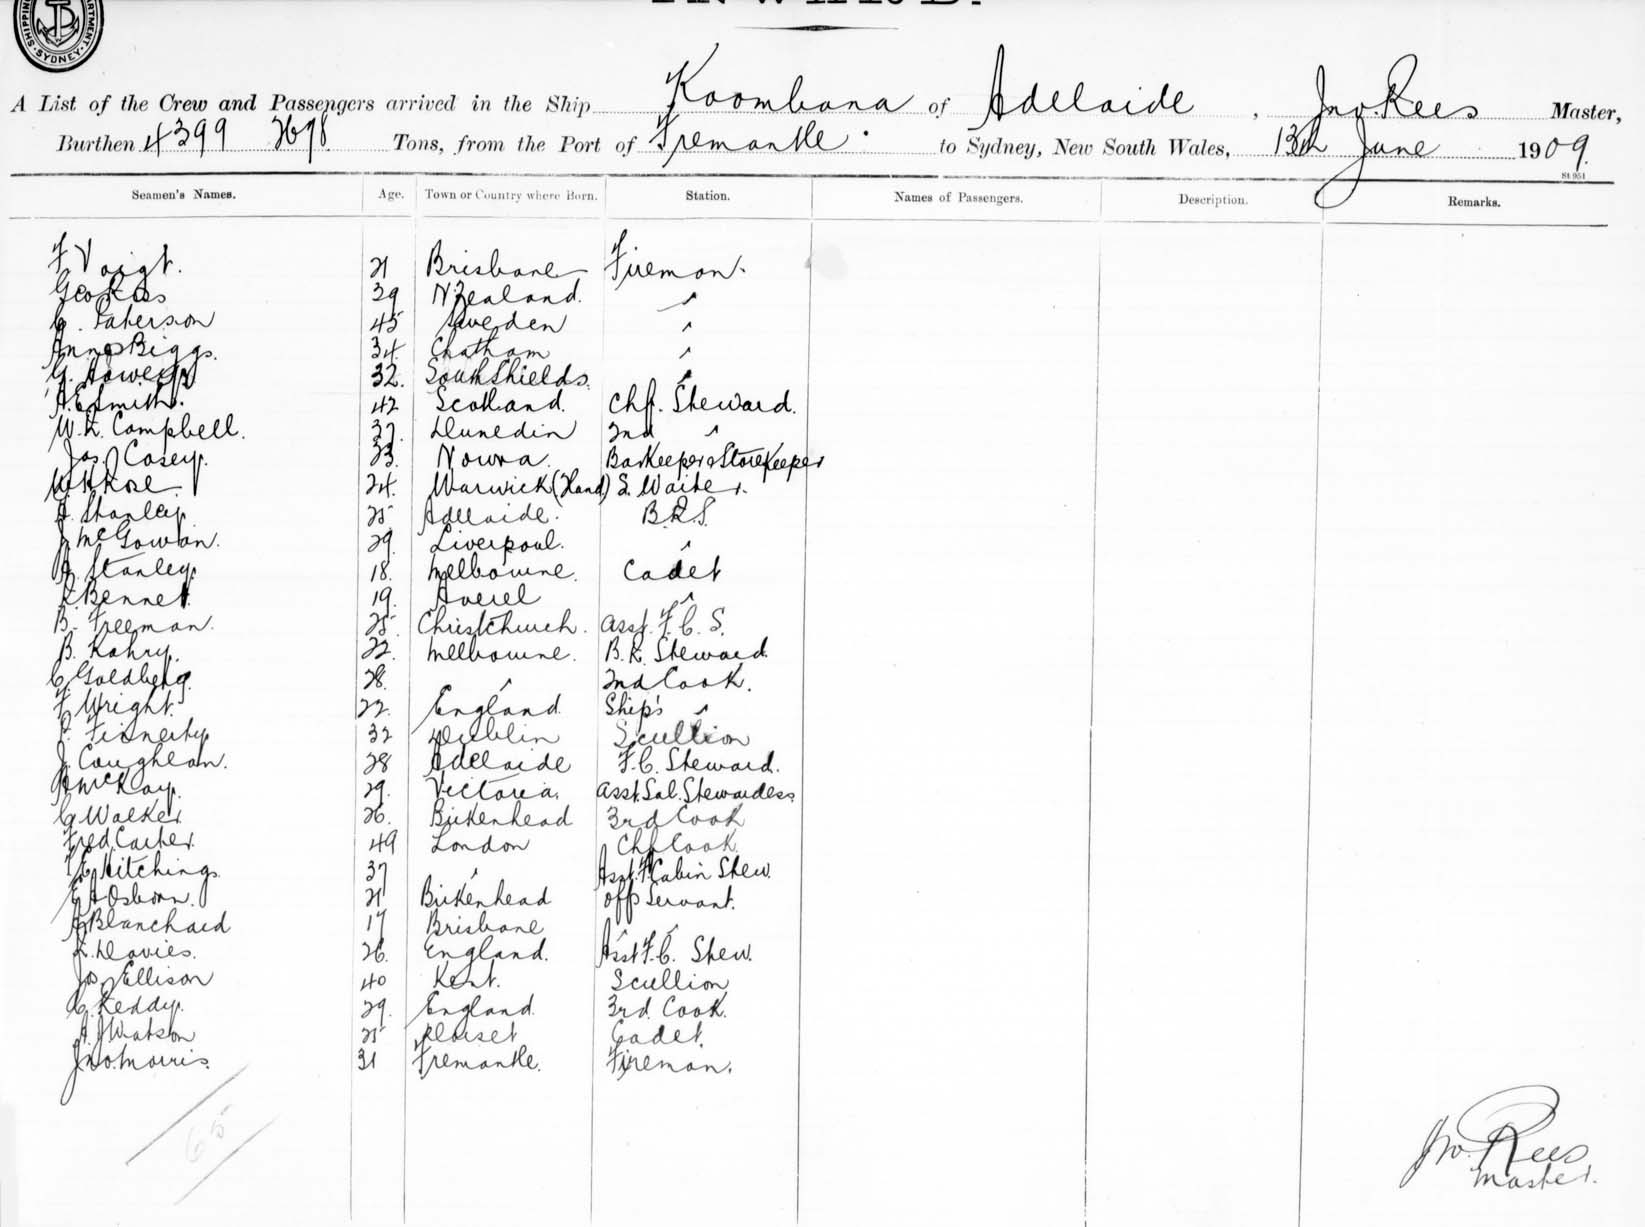 SHIPPING DEPARTMENT. SYDNEY.
INWARD.
A List of the Crew and Passengers arrived in the Ship Koombana of Adelaide , Jno. Rees Master,
Burthen 4399 2698 Tons, from the Port of Fremantle. to Sydney, New South Wales, 13th June 1909.
St 951
Seamen's Names. Age. Town or Country where Born. Station. Names of Passengers. Description. Remarks.
F Voigt. 21 Brisbane Fireman.
Geo Ross 39 N Zealand. "
C. Paterson 45 Sweden "
Biggs. 34. Chatham "
G. 32. South Shields. "
A E Smith. 42 Scotland. Chf. Steward.
W. L. Campbell. 37. Dunedin 2nd "
Jas. Casey. 23. Nowra. Barkeeper & Storekeeper
W H Rose. 24. Warwick (Qland) S. Waiter.
A. Stanley. 25 Adelaide. B.R.S.
J. McGowan. 29. Liverpool. "
A. Stanley. 18. Melbourne. Cadet
R. Bennet. 19. Avenel "
B. Freeman. 25. Christchurch. Asst. F. C. S.
B. Kahry. 22. Melbourne. B.R. Steward.
C. Goldberg. 28. " 2nd Cook.
F. Wright. 22. England. Ship's "
P. Finnerty. 32 Dublin Scullion
J. Coughlan. 28 Adelaide F.C. Steward.
McKay. 29. Victoria. Asst. Sal. Stewardess.
C. Walker 26. Birkenhead 3rd Cook
Fred. Carter. 49 London Chf Cook.
Hitchings. 37 " Asst. F. Cabin Stew.
E A Osborn. 21 Birkenhead Off Servant.
Blanchard 17 Brisbane " "
L. Davies. 26. England. Asst F.C. Stew.
Jas. Ellison 40 Kent. Scullion
C. Reddy. 29. England. 3rd. Cook.
A. J Watson 25 Dorset Cadet.
Jno. Morris. 31 Fremantle. Fireman.
65
Jno. Rees
Master.